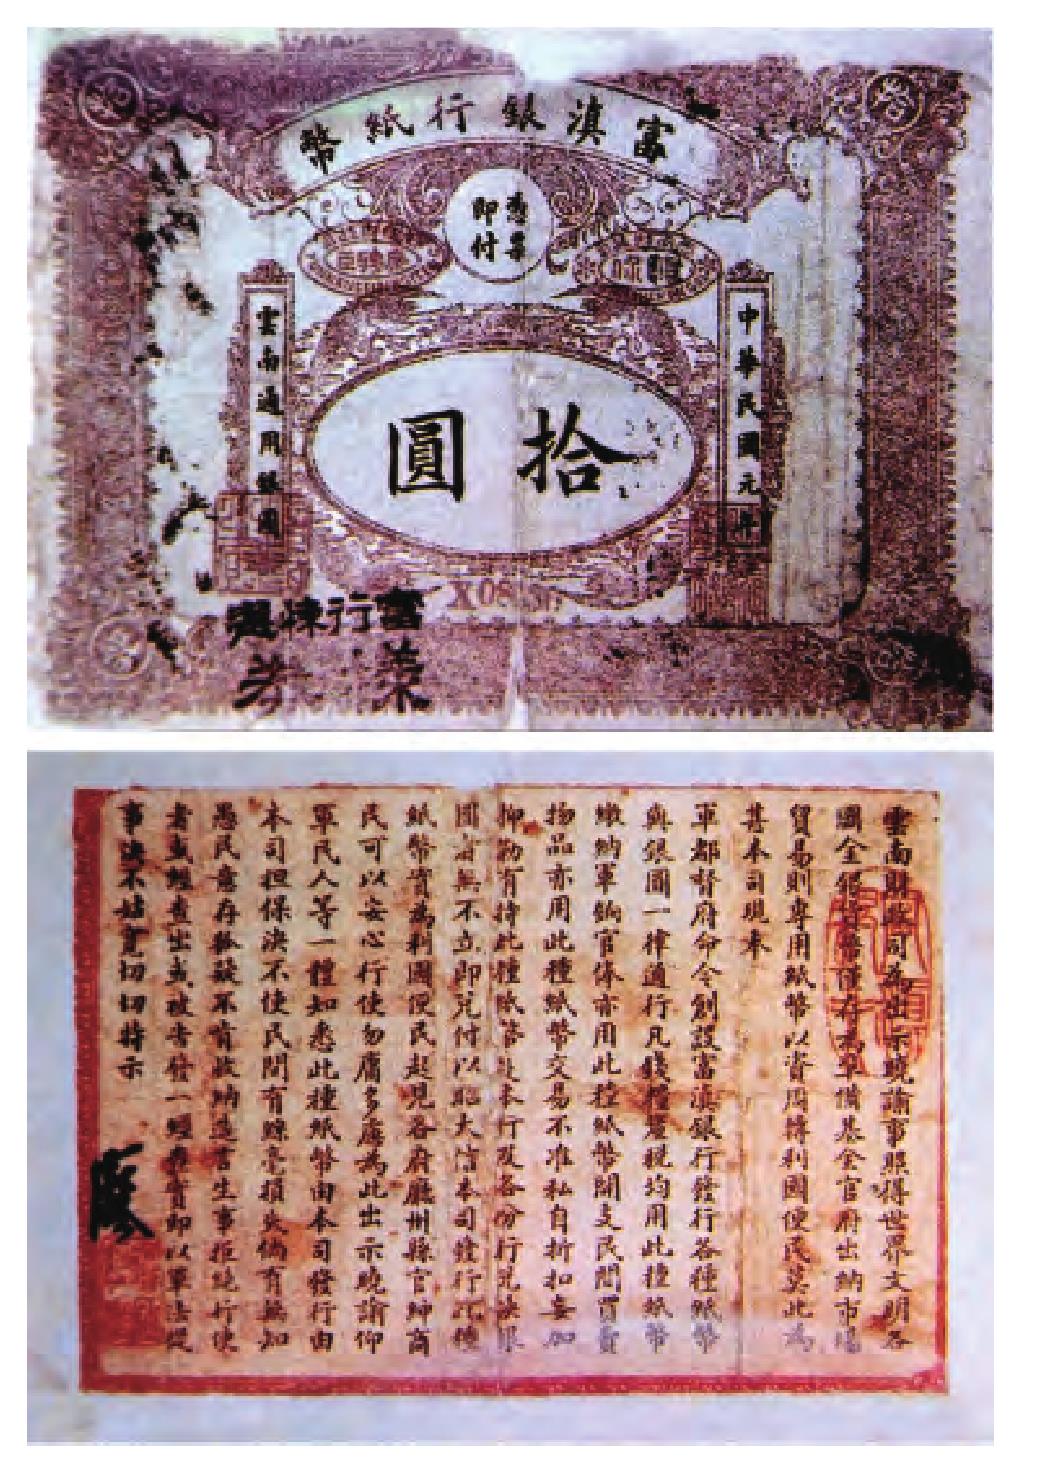 富滇銀行紙幣
憑票
即付
中華民國元年
拾圓
雲南通用銀圓
富行
雲南財政司為出示曉諭事照得世界文明各
國金銀貨幣僅存為準備基金官府出納市場
貿易則專用紙幣以資周轉利國便民莫此為
甚本司現奉
軍都督府命令創設富滇銀行發行各種紙幣
與銀圓一律通行凡錢糧釐稅均用此種紙幣
繳納軍餉官俸亦用此種紙幣開支民間買賣
物品亦用此種紙幣交易不准私自折扣妄加
抑勒有持此種紙幣赴本行及各分行兌換銀
圓者無不立即兌付以昭大信本司發行此種
紙幣實為利國便民起見各府廳州縣官紳商
民可以安心行使勿庸多慮為此出示曉諭仰
軍民人等一體知悉此種紙幣由本司發行由
本司担保決不使民間有絲毫損失倘有無知
愚民意存狐疑不肯收納造言生事拒絕行使
者或經查出或被告發一經查實即以軍法從
事決不姑寬切切特示